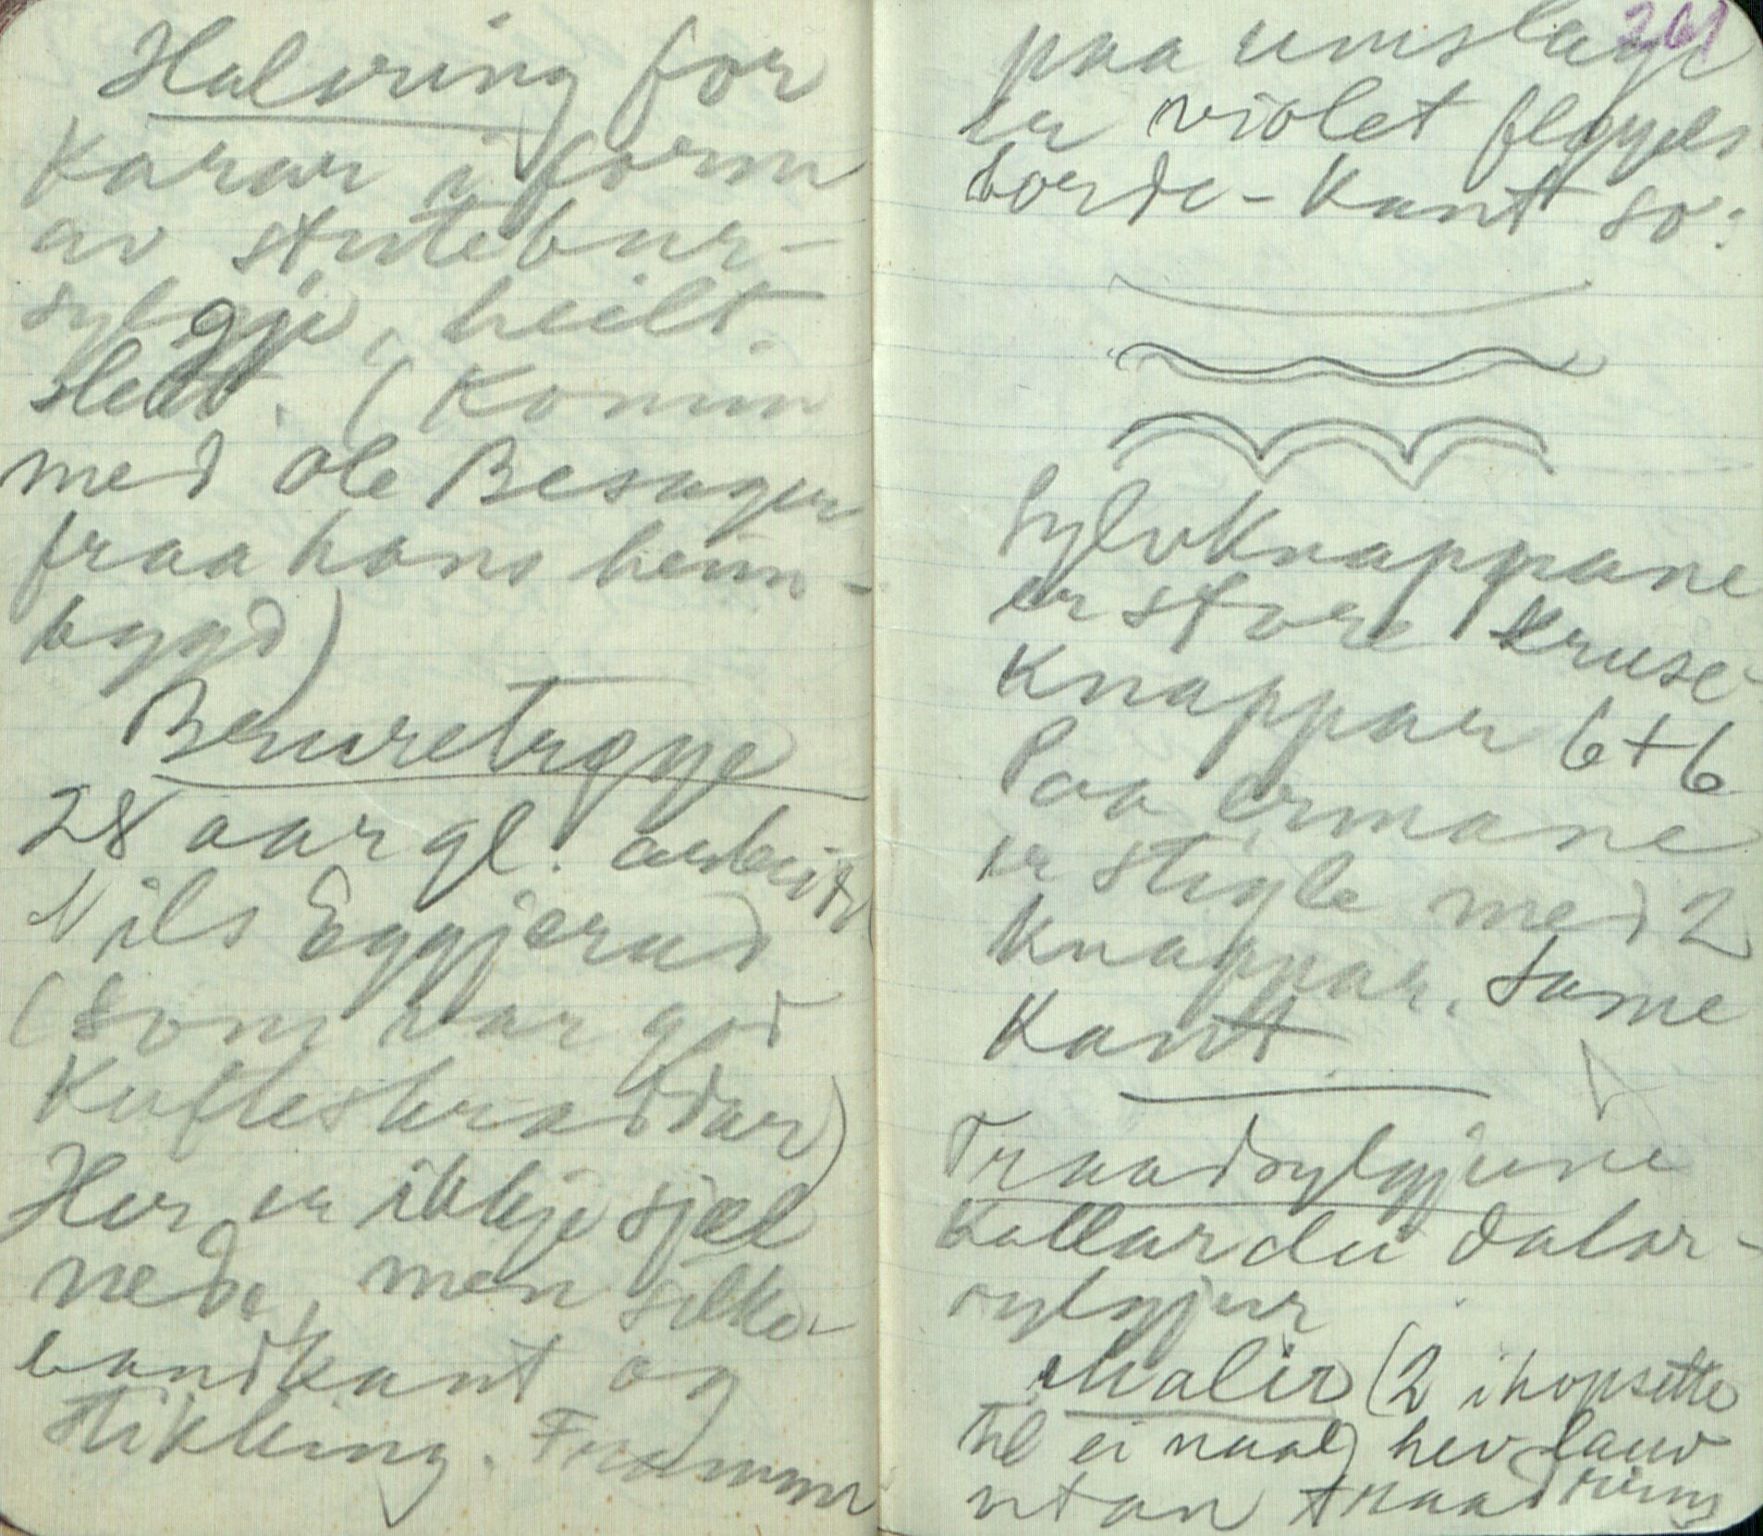 Halsring for
karar i form
av stutebur-
sylgje, heilt
slett. (Komin
med Ole Besager
fraa hans heim-
bygd)
Bruretrøye
28 aar gl. arbeidt
Nils Eggjerud
(som var god
Kufteskraddar)
Her er ikkje sjæl
nede, men silke-
bandkant og
stikking. Framme
261
paa umslage
er violet fløyels
borde-kant so:
Sylvknappane
er store kruse-
knappar 6+6
Paa ermane
er stigle med 2
knappar. Same
kant.
Traadsylgjune
kallar dei dalar-
sylgjur
Malir (2 ihopsette
til ei naal) hev lauv
utan traadring